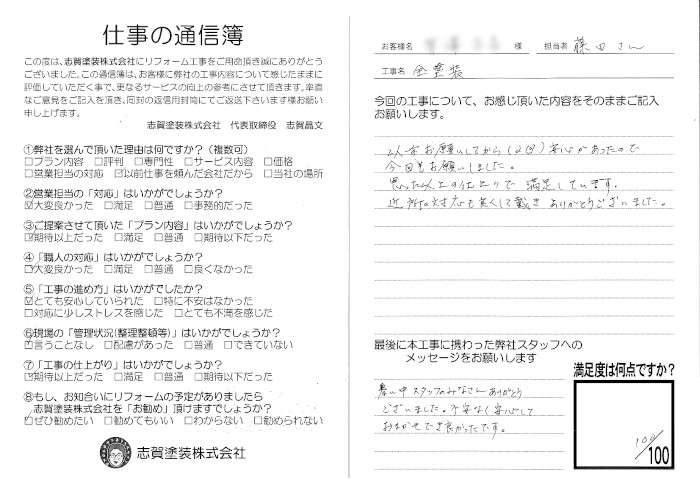 仕事の通信簿
この度は、志賀塗装株式会社にリフォーム工事をご用命頂き誠にありがとう
ございました。この通信簿は、お客様に弊社の工事内容について感じたままに
評価していただく事で、更なるサービスの向上の参考にさせて頂きます。率直
なご意見をご記入を頂き、同封の返信用封筒にてご返送下さいます様お願い
申し上げます。
志賀塗装株式会社 代表取締役 志賀晶文
①弊社を選んで頂いた理由は何ですか？(複数可)
□プラン内容 □評判 □専門性 □サービス内容 □価格
□営業担当の対応 ☑以前仕事を頼んだ会社だから □当社の場所
②営業担当の「対応」はいかがでしょうか？
☑大変良かった □満足 □普通 □事務的だった
③ご提案させて頂いた「プラン内容」はいかがでしょうか？
☑期待以上だった □満足 □普通 □期待以下だった
④「職人の対応」はいかがでしょうか？
☑大変良かった □満足 □普通 □良くなかった
⑤「工事の進め方」はいかがでしたか？
☑とても安心していられた □特に不安はなかった
□対応に少しストレスを感じた □とても不満を感じた
⑥現場の「管理状況(整理整頓等)」はいかがでしょうか？
☑言うことなし □配慮があった □普通 □できていない
⑦「工事の仕上がり」はいかがでしょうか？
☑期待以上だった □満足 □普通 □期待以下だった
⑧もし、お知合いにリフォームの予定がありましたら
志賀塗装株式会社を「お勧め」頂けますでしょうか？
☑ぜひ勧めたい □勧めてもいい □わからない □勧められない
志賀塗装株式会社
お客様名 様 担当者 藤田さん
工事名 全塗装
今回の工事について、お感じ頂いた内容をそのままご記入
お願いします。
以前お願いしてから(2回)安心があったので
今回もお願いしました。
思った以上の仕上りで満足しています。
近所の対応も良くして戴きありがとうございました。
最後に本工事に携わった弊社スタッフへの
メッセージをお願いします
暑い中スタッフのみなさんありがとう
ございました。不安なく安心して
おまかせでき良かったです。
満足度は何点ですか？
100
/100